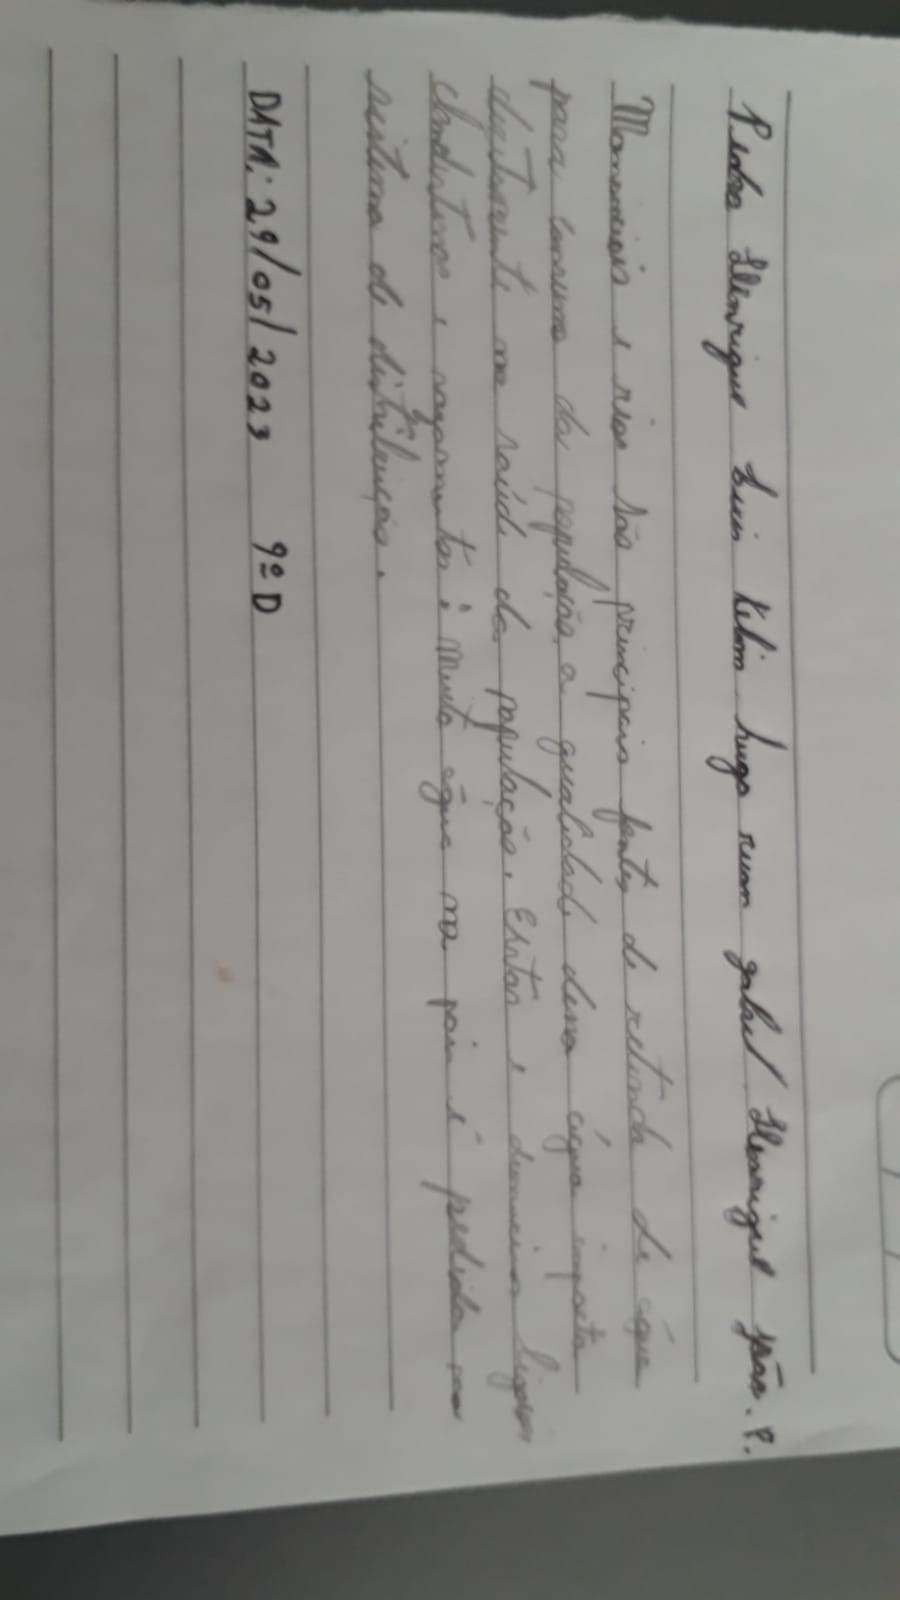 Pedro Henrique Luis Kelvin hugo ruan gabriel Henrique joão. P.
Mananciais e rios são principais fontes de retirada de água
para consumo da população, a qualidade dessa água impacta
diretamente na saúde da população. Existem e inúmeras ligações
clandestinas e vazamentos. Muita água no país é perdida no
sistema de distribuição.
DATA: 29/05/2023 9º D